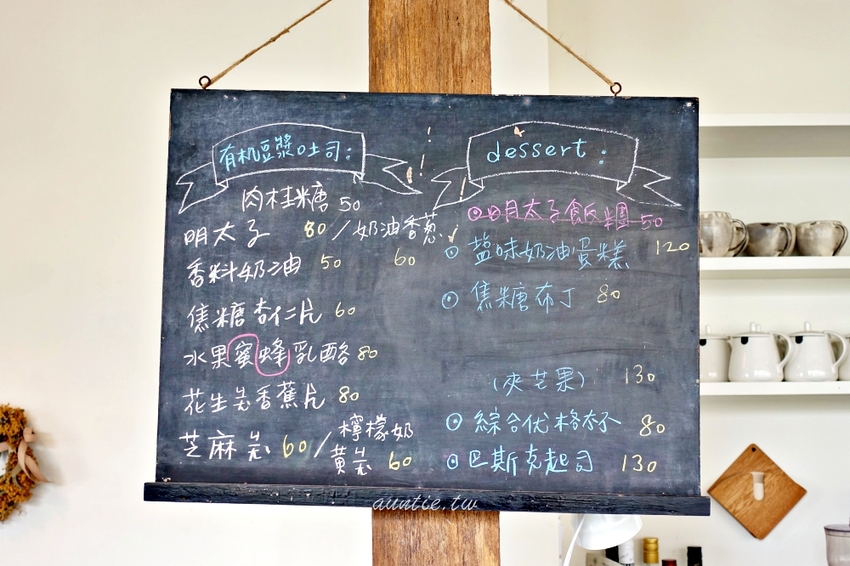 有机豆漿吐司:
肉桂糖 50
明太子 80/奶油香蔥
香料奶油 50 60
焦糖杏仁片 60
水果蜜蜂乳酪 80
花生岩香蕉片 80
芝麻岩 60/檸檬奶
黄岩 60
dessert:
明太子飯糰 50
鹽味奶油蛋糕 120
焦糖布丁 80
(夾芒果) 130
綜合优格杯 80
巴斯克起司 130
auntie.tw